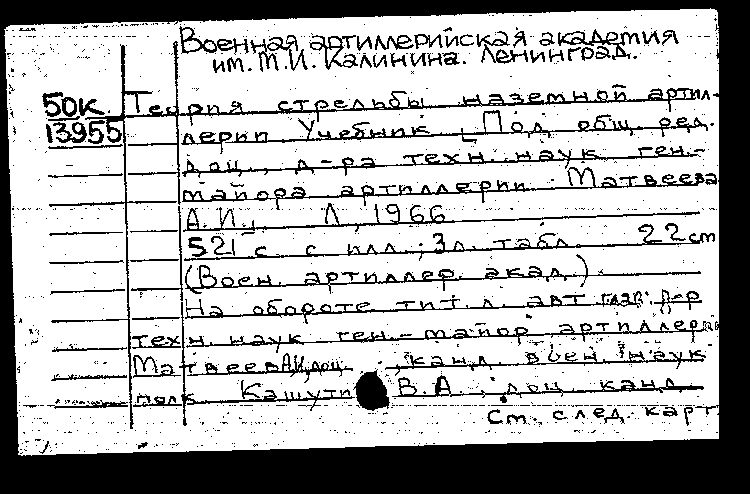 Военная артиллерийская академия
им. М.И. Калинина. Ленинград.
50к. Теория стрельбы наземной артил-
13955 лерии. Учебник. [Под общ. ред.
доц., д-ра техн. наук ген.-
майора артиллерии Матвеева
А.И.] Л, 1966
521 с. с илл.; 3л. табл. 22 см
(Воен. артиллер. акад.).
На обороте тит. л. авт глав: д-р
техн. наук ген.-майор артиллерии
Матвеев А.И, доц., канд. воен. наук
полк Кашути В.А., доц. канд.
См. след. карт.